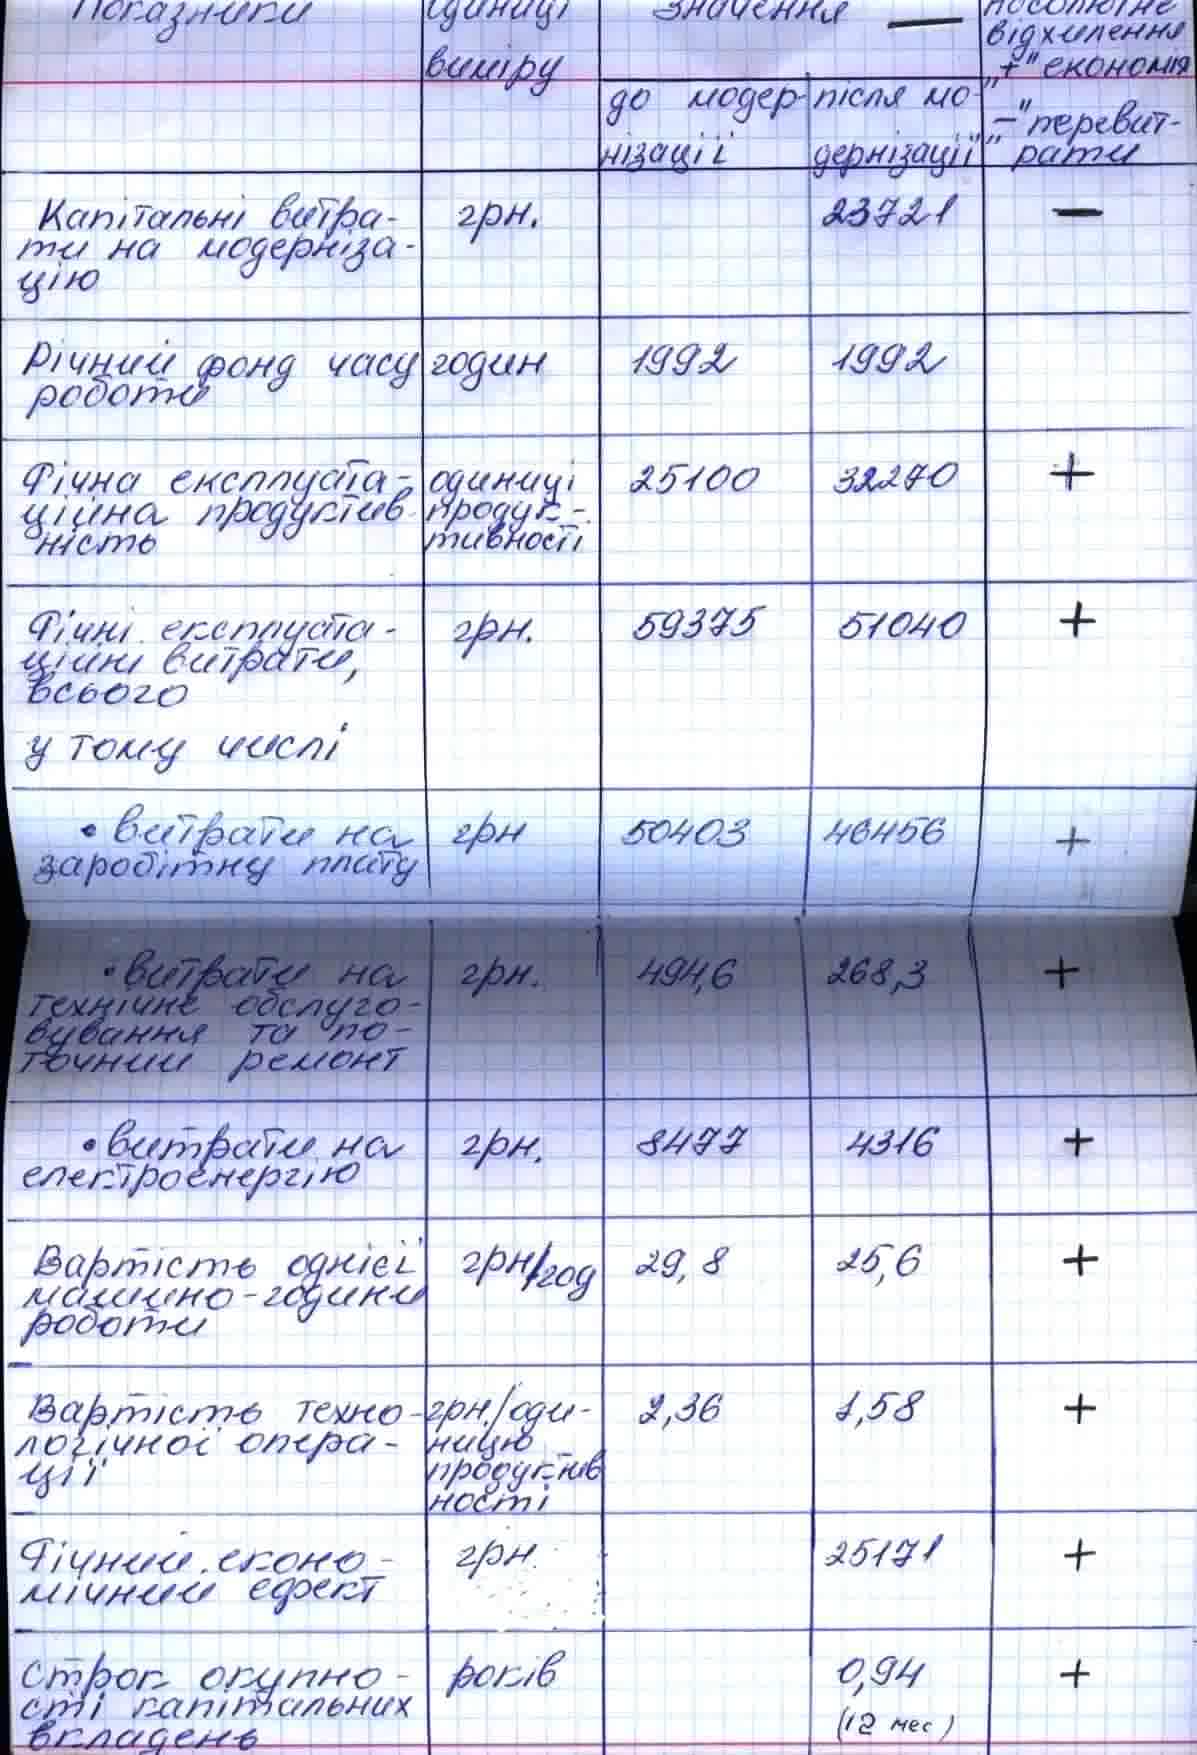 Показники
одиниці
виміру
Значення —
Абсолютне
відхилення
„+" економія
„–" перевит-
рати
до модер-
нізації
після мо-
дернізації
Капітальні витра-
ти на модерніза-
цію
грн.
23721
—
Річний фонд часу
роботи
годин
1992
1992
Річна експлуата-
ційна продуктив-
ність
одиниці
продук-
тивності
25100
32270
+
Річні експлуата-
ційні витрати,
всього
у тому числі
грн.
59375
51040
+
• витрати на
заробітну плату
грн
50403
46456
+
• витрати на
технічне обслуго-
вування та по-
точний ремонт
грн.
494,6
268,3
+
• витрати на
електроенергію
грн.
8477
4316
+
Вартість однієї
машино-години
роботи
грн/год
29,8
25,6
+
Вартість техно-
логічної опера-
ції
грн./оди-
ницю
продуктив
ності
2,36
1,58
+
Річний еконо-
мічний ефект
грн.
25171
+
Строк окупно-
сті капітальних
вкладень
років
0,94
(12 мес)
+